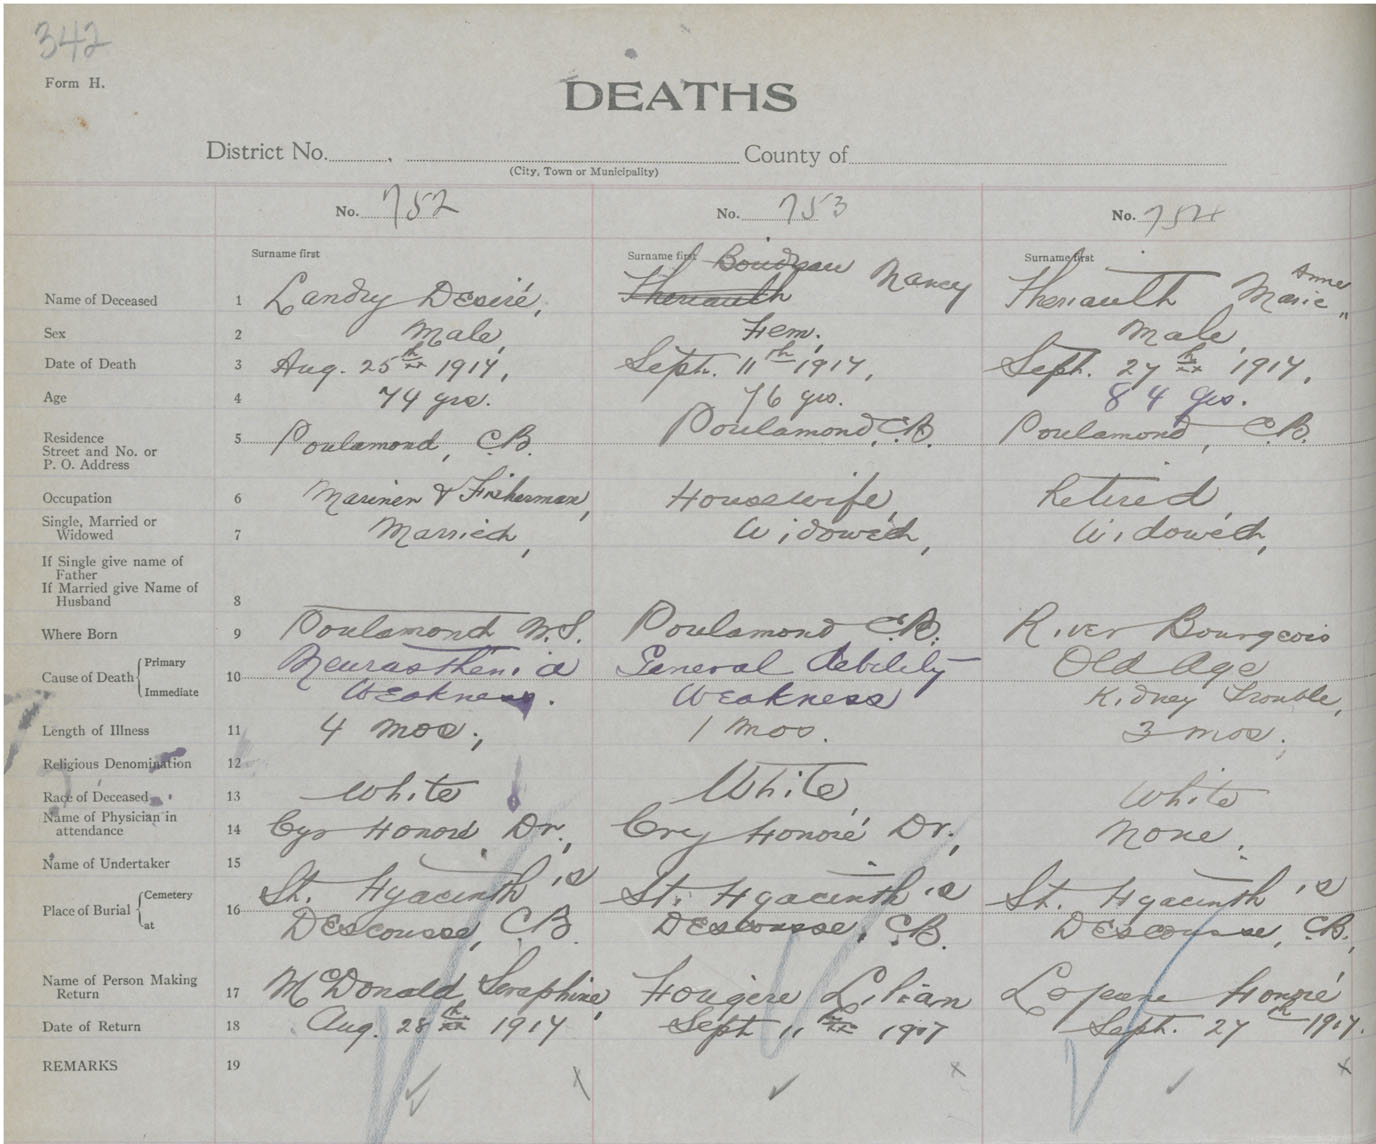 342
Form H.
DEATHS
District No. , County of
(City, Town or Municipality)
No. 752 No. 753 No. 754
Surname first Surname first Boudreau Surname first
Name of Deceased 1 Landry Desiré, Theriault Nancy Theriault Marie Anne
Sex 2 Male, Fem. Male,
Date of Death 3 Aug. 25th 1917, Sept. 11th 1917, Sept. 27th 1917,
Age 4 74 yrs. 76 yrs. 84 yrs.
Residence
Street and No. or 5 Poulamond, C.B. Poulamond, C.B. Poulamond, C.B.
P. O. Address
Occupation 6 Mariner & Fisherman, Housewife, Retired,
Single, Married or
Widowed 7 Married, Widowed, Widowed,
If Single give name of
Father
If Married give Name of
Husband 8
Where Born 9 Poulamond N.S. Poulamond C.B. River Bourgeois
Cause of Death Primary Neurasthenia General debility Old Age
Immediate 10 Weakness. Weakness Kidney Trouble,
Length of Illness 11 4 mos., 1 mos. 3 mos.,
Religious Denomination 12
Race of Deceased 13 White White, White
Name of Physician in
attendance 14 Cyr Honoré Dr., Cry Honoré Dr., None.
Name of Undertaker 15
Place of Burial Cemetery St. Hyacinth's St. Hyacinth's St. Hyacinth's
at 16 Descousse, C.B. Descousse, C.B. Descousse, C.B.,
Name of Person Making
Return 17 McDonald, Seraphine, Fougère Lilian Lojeane Honoré
Date of Return 18 Aug. 28th 1917 Sept 11th 1917 Sept. 27th 1917.
REMARKS 19